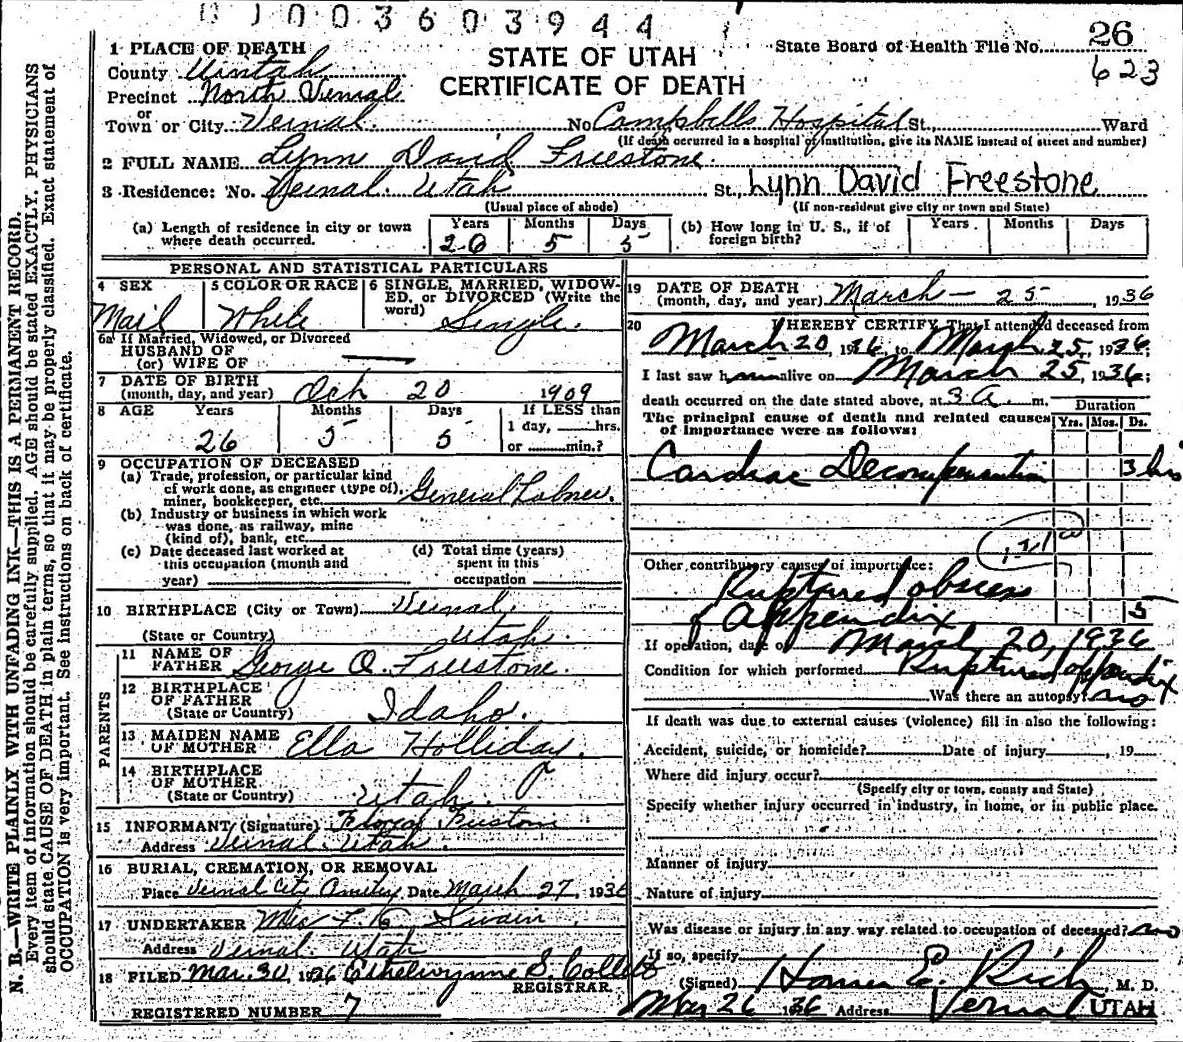 003603944
26
623
State Board of Health File No.
STATE OF UTAH
CERTIFICATE OF DEATH
N. B.—WRITE PLAINLY WITH UNFADING INK—THIS IS A PERMANENT RECORD.
Every item of information should be carefully supplied. AGE should be stated EXACTLY. PHYSICIANS
should state CAUSE OF DEATH in plain terms, so that it may be properly classified. Exact statement of
OCCUPATION is very important. See instructions on back of certificate.
1 PLACE OF DEATH
County Uintah
Precinct North Vernal
or
Town or City Vernal. No Campbells Hospital St., Ward
(If death occurred in a hospital or institution, give its NAME instead of street and number)
2 FULL NAME Lynn David Freestone.
3 Residence: No. Vernal. Utah St., Lynn David Freestone
(Usual place of abode) (If non-resident give city or town and State)
(a) Length of residence in city or town where death occurred. Years 26 Months 5 Days 5
(b) How long in U. S., if of foreign birth? Years Months Days
PERSONAL AND STATISTICAL PARTICULARS
4 SEX Mail
5 COLOR OR RACE White
6 SINGLE, MARRIED, WIDOWED, or DIVORCED (Write the word) Single.
6a If Married, Widowed, or Divorced
HUSBAND OF
(or) WIFE OF
7 DATE OF BIRTH
(month, day, and year) Oct 20 1909
8 AGE Years 26 Months 5 Days 5
If LESS than
1 day, hrs.
or min.?
9 OCCUPATION OF DECEASED
(a) Trade, profession, or particular kind
of work done, as engineer (type of),
miner, bookkeeper, etc. General Labner.
(b) Industry or business in which work
was done, as railway, mine
(kind of), bank, etc.
(c) Date deceased last worked at
this occupation (month and
year)
(d) Total time (years)
spent in this
occupation
10 BIRTHPLACE (City or Town) Vernal,
(State or Country) Utah.
PARENTS
11 NAME OF FATHER George O. Freestone.
12 BIRTHPLACE OF FATHER
(State or Country) Idaho.
13 MAIDEN NAME OF MOTHER Ella Holliday.
14 BIRTHPLACE OF MOTHER
(State or Country) Utah.
15 INFORMANT (Signature)
Address Vernal. Utah.
16 BURIAL, CREMATION, OR REMOVAL
Place Vernal City Date March 27, 1936
17 UNDERTAKER Swain
Address Vernal. Utah
18 FILED Mar. 30, 1936 Ethelwynne S. Collett
REGISTRAR.
REGISTERED NUMBER 7
19 DATE OF DEATH
(month, day, and year) March - 25, 1936
20 I HEREBY CERTIFY, That I attended deceased from
March 20, 1936 to March 25, 1936;
I last saw him alive on March 25, 1936;
death occurred on the date stated above, at 3 a. m.
The principal cause of death and related causes
of importance were as follows:
Duration
Yrs. Mos. Ds.
Cardiac Decompensation 3 hrs
Other contributory causes of importance:
Ruptured abscess
of Appendix 5
If operation, date of March 20, 1936
Condition for which performed Ruptured appendix
Was there an autopsy? no
If death was due to external causes (violence) fill in also the following:
Accident, suicide, or homicide? Date of injury , 19
Where did injury occur?
(Specify city or town, county and State)
Specify whether injury occurred in industry, in home, or in public place.
Manner of injury
Nature of injury
Was disease or injury in any way related to occupation of deceased? no
If so, specify
(Signed) Homer E. Rich, M. D.
Mar 26 1936 Address Vernal UTAH